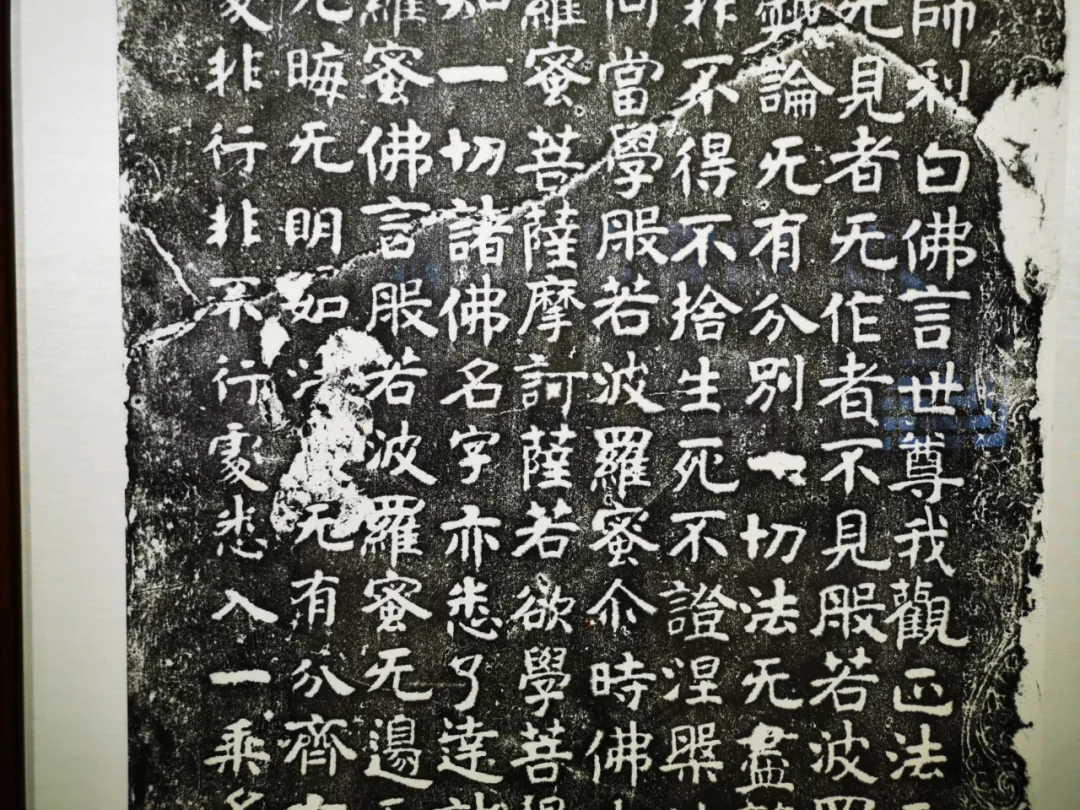 師利白佛言世尊我觀正法
无見者无作者不見般若波羅
論无有分別一切法无盡離
非不得不捨生死不證涅槃
當學般若波羅蜜尒時佛
羅蜜菩薩摩訶薩若欲學菩提
知一切諸佛名字亦悉了達
羅蜜佛言般若波羅蜜无邊无
无晦无明如法无有分齊
處非行非不行處悉入一乘名